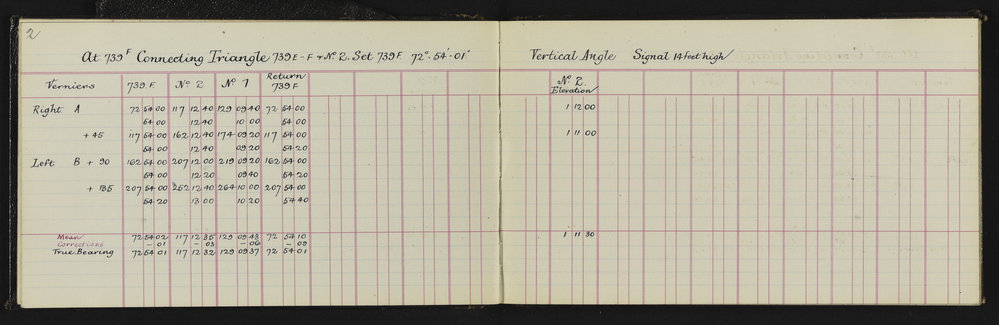 2
At 739F Connecting Triangle 739E-F & No 2. Set 739F. 72°-54'-01"
Vertical Angle Signal 14 feet high
Verniers 739 F. No 2 No 1 Return 739 F
No 2. Elevation
Right A 72 54 00 117 12 40 129 09 40 72 54 00 1 12 00
54 00 12 40 10 00 54 00
+ 45 117 54 00 162 12 40 174 09 20 117 54 00 1 11 00
54 00 12 40 09 20 54 20
Left B + 90 162 54 00 207 12 00 219 09 20 162 54 00
54 00 12 20 09 40 54 20
+ 135 207 54 00 252 12 40 264 10 00 207 54 00
54 20 13 00 10 20 54 40
Mean 72 54 02 117 12 35 129 09 43 72 54 10 1 11 30
Corrections - 01 - 03 - 06 - 09
True Bearing 72 54 01 117 12 32 129 09 37 72 54 01